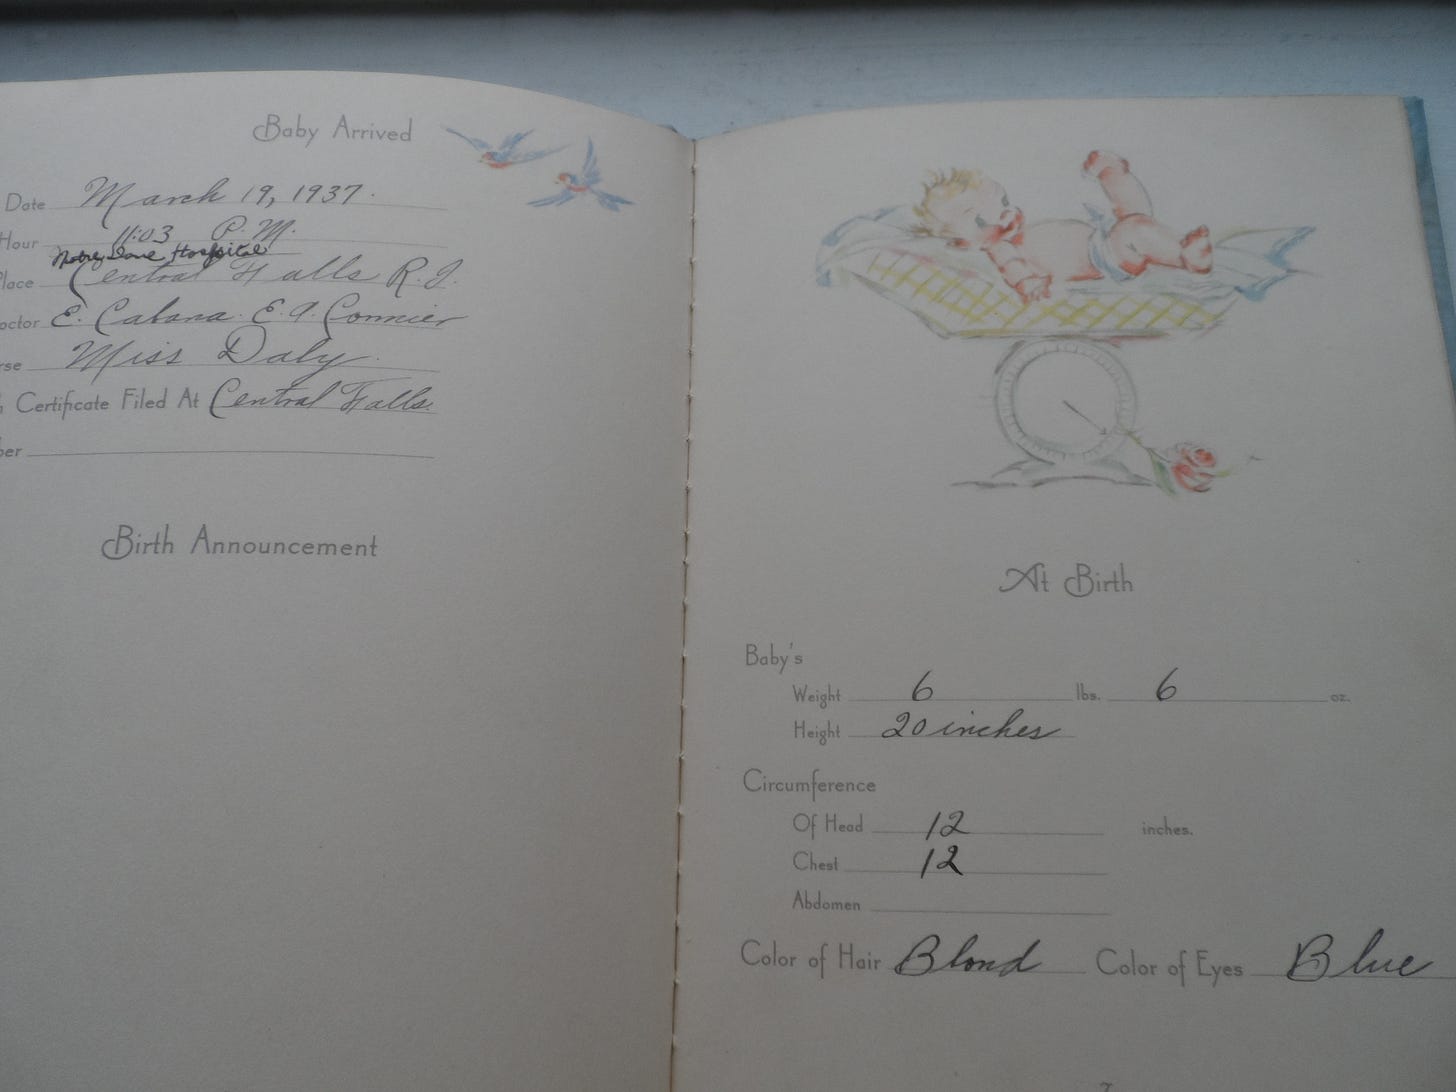 Baby Arrived
Date March 19, 1937.
Hour 11:03 P.M.
Notre Dame Hospital
lace Central Falls R.I.
octor E. Cabana. E. A. Connier
rse Miss Daly.
h Certificate Filed At Central Falls.
ber
Birth Announcement
At Birth
Baby's
Weight 6 lbs. 6 oz.
Height 20 inches
Circumference
Of Head 12 inches.
Chest 12
Abdomen
Color of Hair Blond Color of Eyes Blue